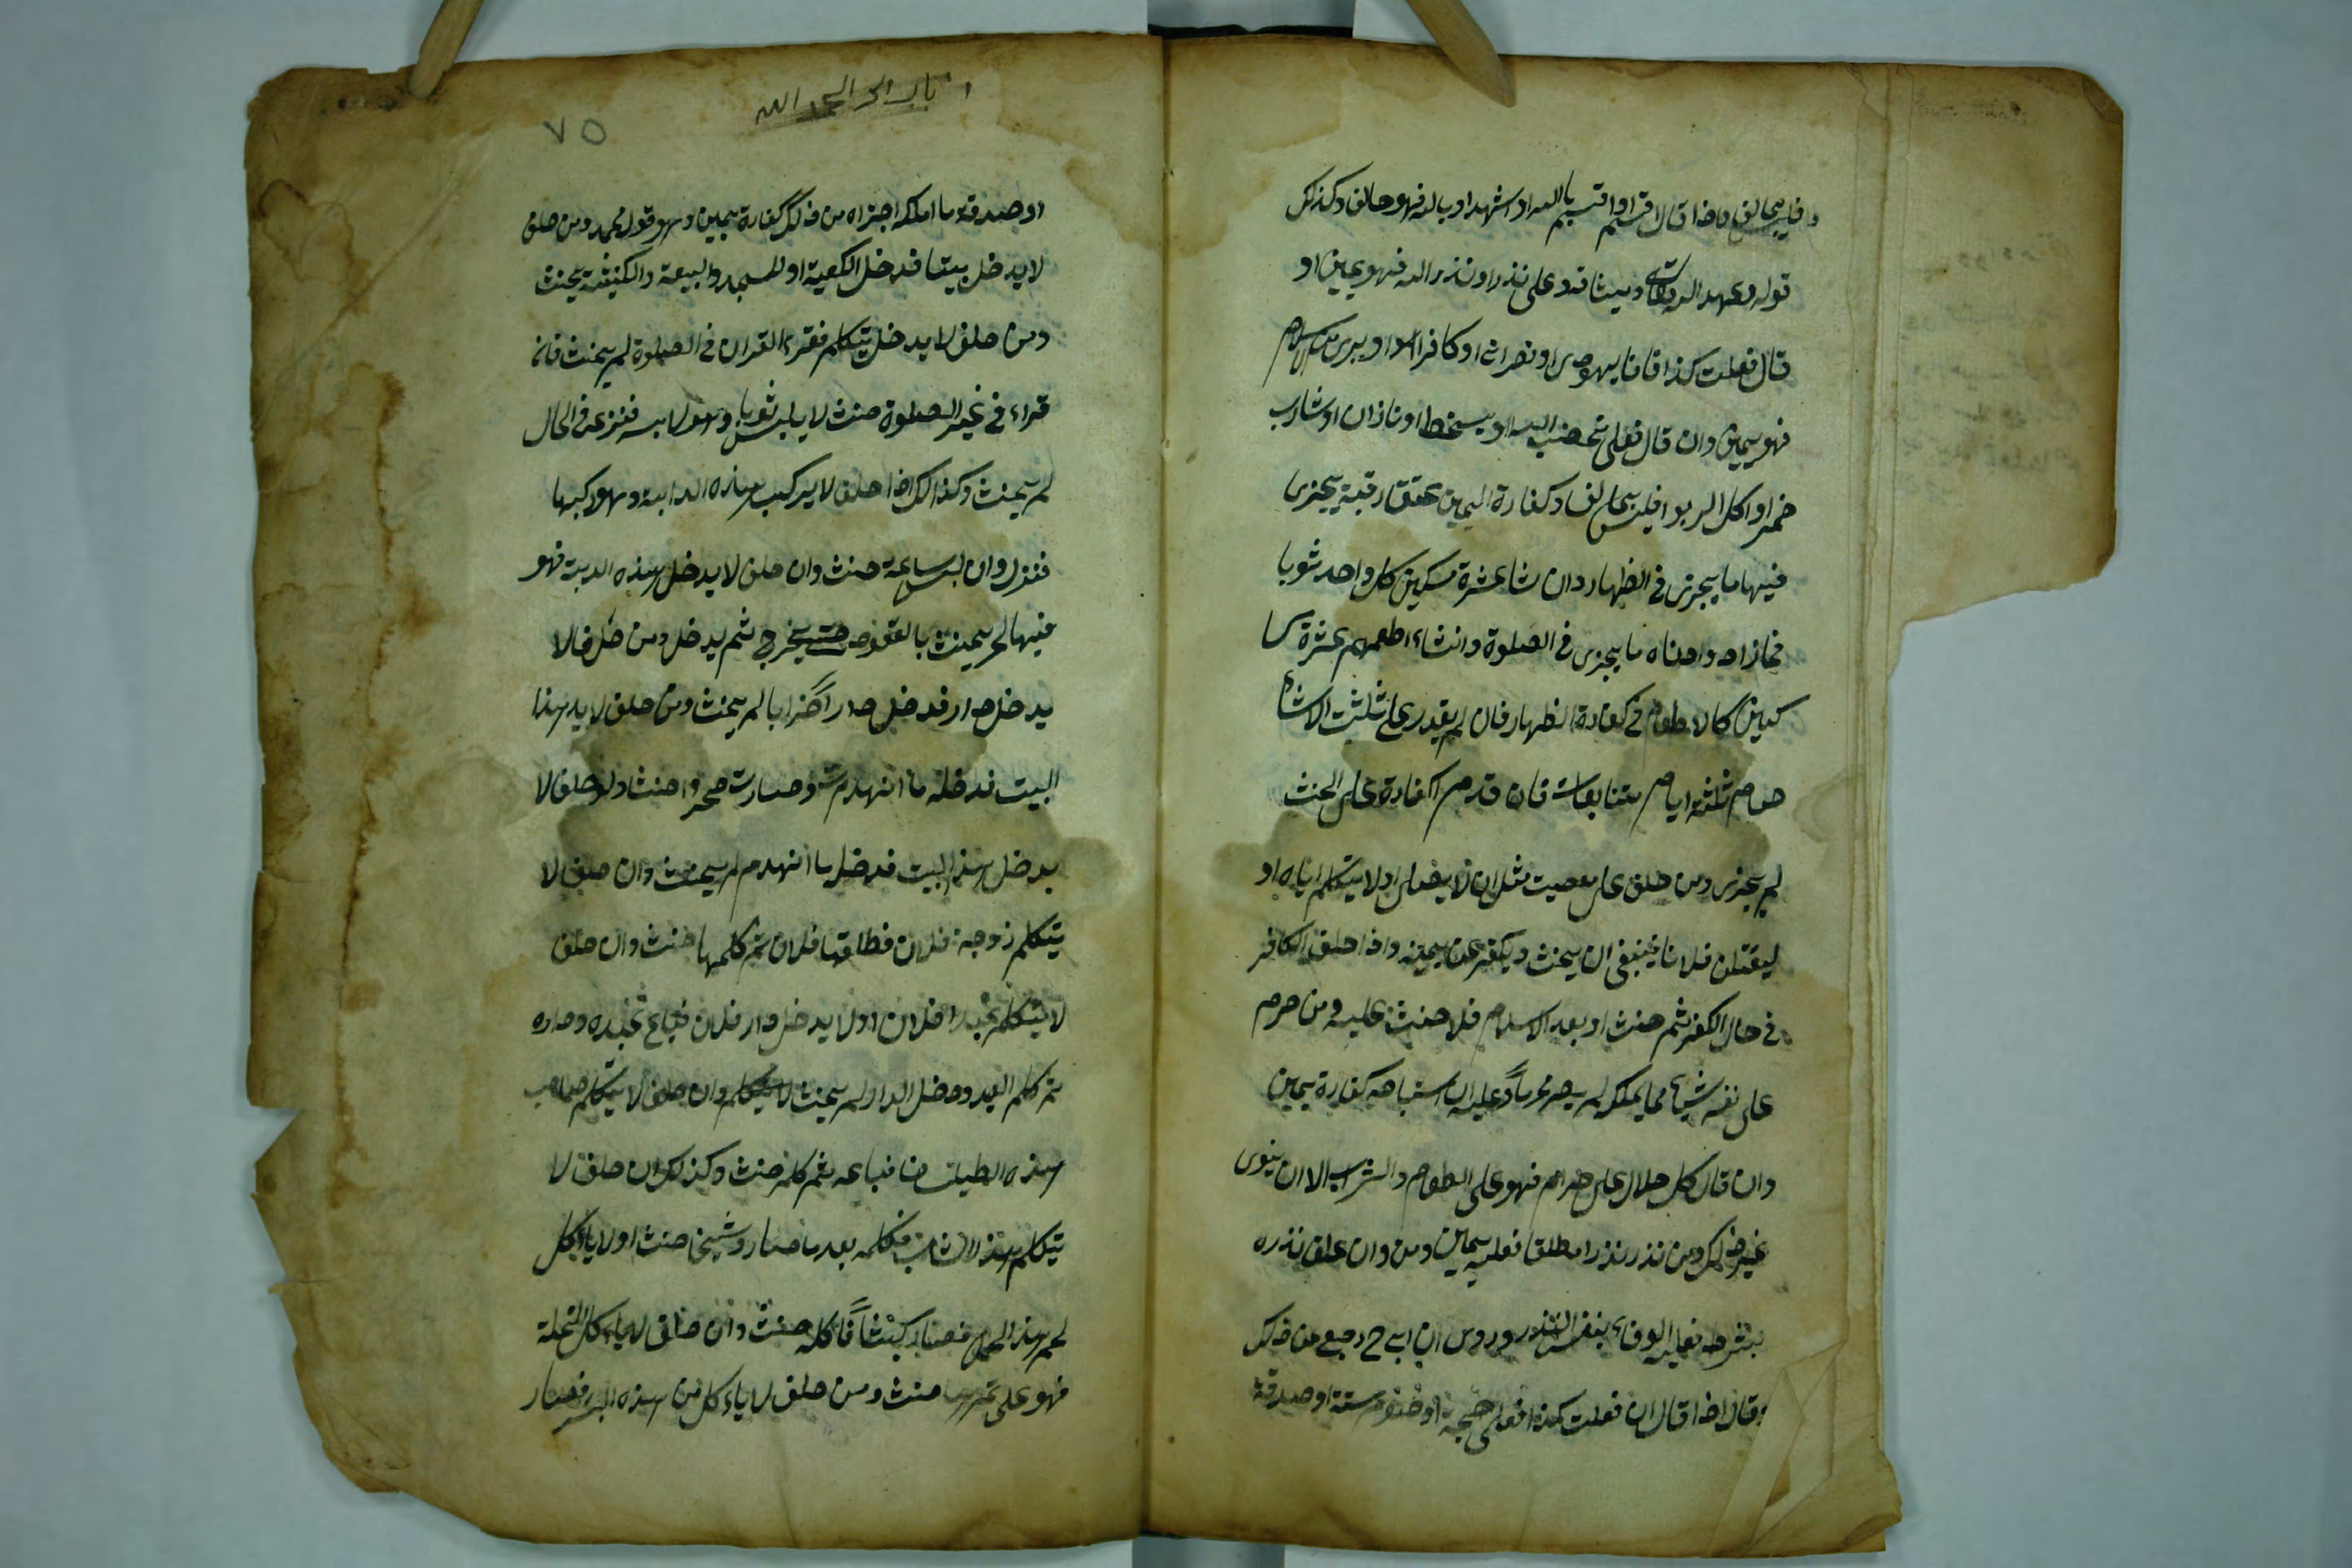 فليس بحالف واذا قال اقسم او اقسم بالله او اشهد او بالله فهو حالف وكذلك
قوله وعهد الله وميثاقه وعلى نذر او نذر الله فهو يمين او
قال فعلت كذا فانا يهودى او نصرانى او كافرا او برى من الاسلام
فهو يمين وان قال فعلى غضب الله او سخط او انا زان او شارب
خمر او اكل الربوا فليس بحالف وكفارة اليمين عتق رقبة يجزى
فيها ما يجزى فى الظهار وان شا عشرة مسكين كل واحد ثوبا
فمازاد وادناه ما يجزى فى الصلوة وانشاء اطعمهم عشرة مسا
كين كالاطعام فى كفارة الظهار فان لم يقدر على ثلث الاشياء
صوم ثلثة ايام متتابعات فان قدم الكفارة على الحنث
لم يجزى ومن حلف على معصيت مثل ان لا يصلى او لا يتكلم اباه او
ليقتلن فلانا ينبغى ان يحنث ويكفر عن يمينه واذا حلف الكافر
فى حال الكفر ثم حنث او بعد الاسلام فلا حنث عليه ومن حرم
على نفسه شيئا مما يملكه لم يصر محرما وعليه ان استباحه كفارة يمين
وان قال كل حلال على حرام فهو على الطعام والشرب الا ان ينوى
غير ذلك ومن نذر نذرا مطلقا فعليه يمين ومن وان علق نذره
بشرط فعليه الوفاء بنفس النذر وروى ان ابى ح رجع عن ذلك
وقال اذا قال ان فعلت كذا فعلى حجة او صوم سنة او صدقة
٧٥
او صدقة ما املكه اجزاه من ذلك كفارة يمين وهو قول محمد ومن حلف
لا يدخل بيتا فدخل الكعبة او المسجد والبيعة والكنيسة يحنث
ومن حلف لا يدخل يتكلم فقرء القران فى الصلوة لم يحنث فان
قراء فى غير الصلوة حنث لا يلبس ثوبا وهو لابسه فنزعه فى الحال
لم يحنث وكذالك اذا حلف لا يركب هذه الدابة وهو راكبها
فنزل وان لبس ساعة حنث وان حلف لا يدخل هذه الدار وهو
فيها لم يحنث بالقعود حتى يخرج ثم يدخل ومن حلف لا
يدخل دار فدخل دارا خرابا لم يحنث ومن حلف لا يد هذا
البيت فدخله ما انهدمت وصارت صحروا حنث ولو حلف لا
يدخل هذا البيت فدخل ما انهدم لم يحنث وان حلف لا
يتكلم زوجة فلان فطلقها فلان ثم كلمها حنث وان حلف
لا يتكلم عبدا فلان او لا يدخل دار فلان فباع عبده وداره
ثم كلم العبد ودخل الدار لم يحنث لا يتكلم وان حلف لا يتكلم صاحب
هذه الطيلسان فباعه ثم كلمه حنث وكذلك ان حلف لا
يتكلم هذا الشاب فكلمه بعد ما صار شيخا حنث او لا ياكل
لحم هذا الحمل فصار كبشا فاكله حنث وان حلف لا ياءكل النخلة
فهو على ثمرها حنث ومن حلف لا ياءكل من هذه البسر فصار